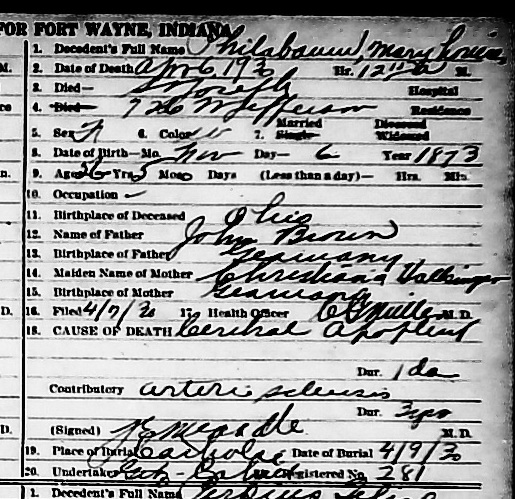 FOR FORT WAYNE, INDIANA
1. Decedent's Full Name Philabaum, Mary Louise
M. 2. Date of Death Apr 6, 1930 Hr. M.
3. Died— St Joseph Hospital
4. Died— 726 W Jefferson Residence
5. Sex F 6. Color W 7. Married Single Divorced Widowed
8. Date of Birth—Mo. Nov Day— 6 Year 1873
n. 9. Age 56 Yrs. 5 Mos. Days (Less than a day)— Hrs. Min.
10. Occupation
11. Birthplace of Deceased Ohio
12. Name of Father John Brown
13. Birthplace of Father Germany
14. Maiden Name of Mother Christiana
15. Birthplace of Mother Germany
D. 16. Filed 4/7/30 17. Health Officer M.D.
18. CAUSE OF DEATH Cerebral Apoplexy
Dur. 1 da
Contributory arterio sclerosis
Dur. 3 yrs
D. (Signed) M.D.
19. Place of Burial Catholic Date of Burial 4/9/30
20. Undertaker Registered No. 281
1. Decedent's Full Name